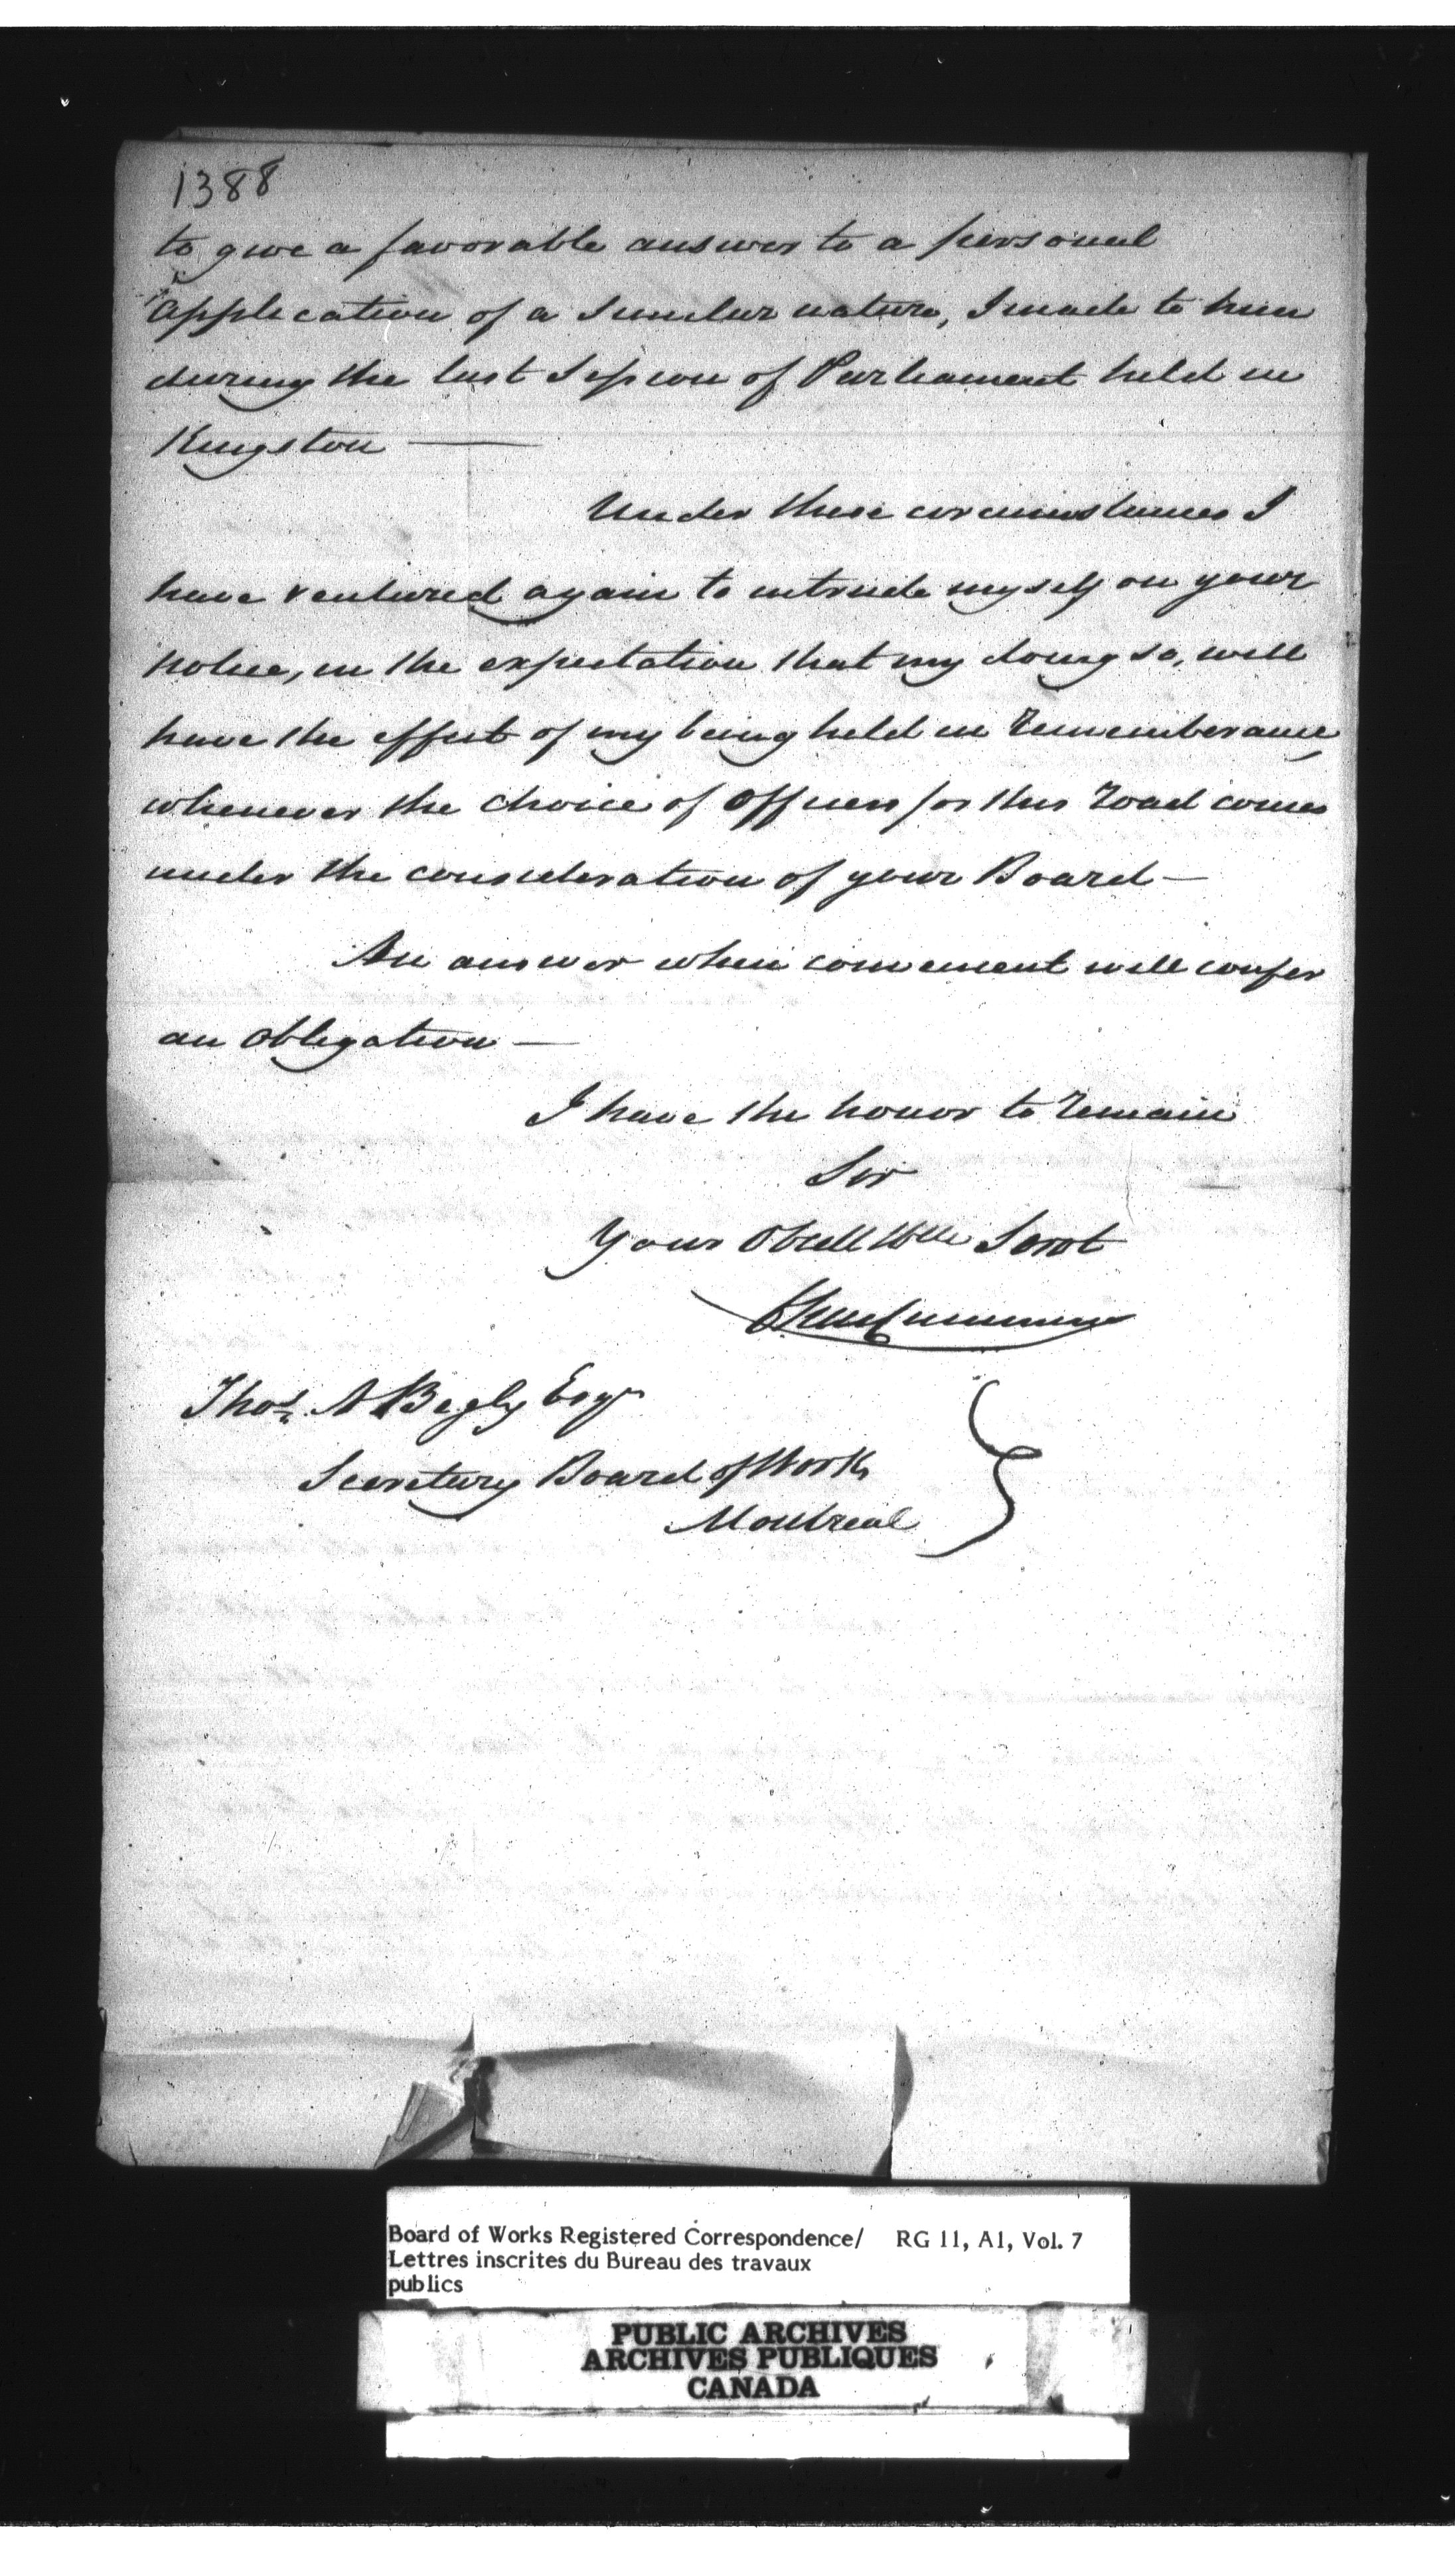 1388
to give a favorable answer to a personal
application of a similar nature, I made to him
during the last Session of Parliament held in
Kingston —
Under these circumstances I
have ventured again to intrude myself on your
notice, in the expectation that my doing so, will
have the effect of my being held in rememberance
whenever the choice of Officers for this road comes
under the consideration of your Board —
An answer when convenient will confer
an obligation —
I have the honor to remain
Sir
Your Obedt Hble Servt
Cummings
Thos. A Begly Esqr
Secretary Board of Works
Montreal
Board of Works Registered Correspondence/ RG 11, A1, Vol. 7
Lettres inscrites du Bureau des travaux
publics
PUBLIC ARCHIVES
ARCHIVES PUBLIQUES
CANADA